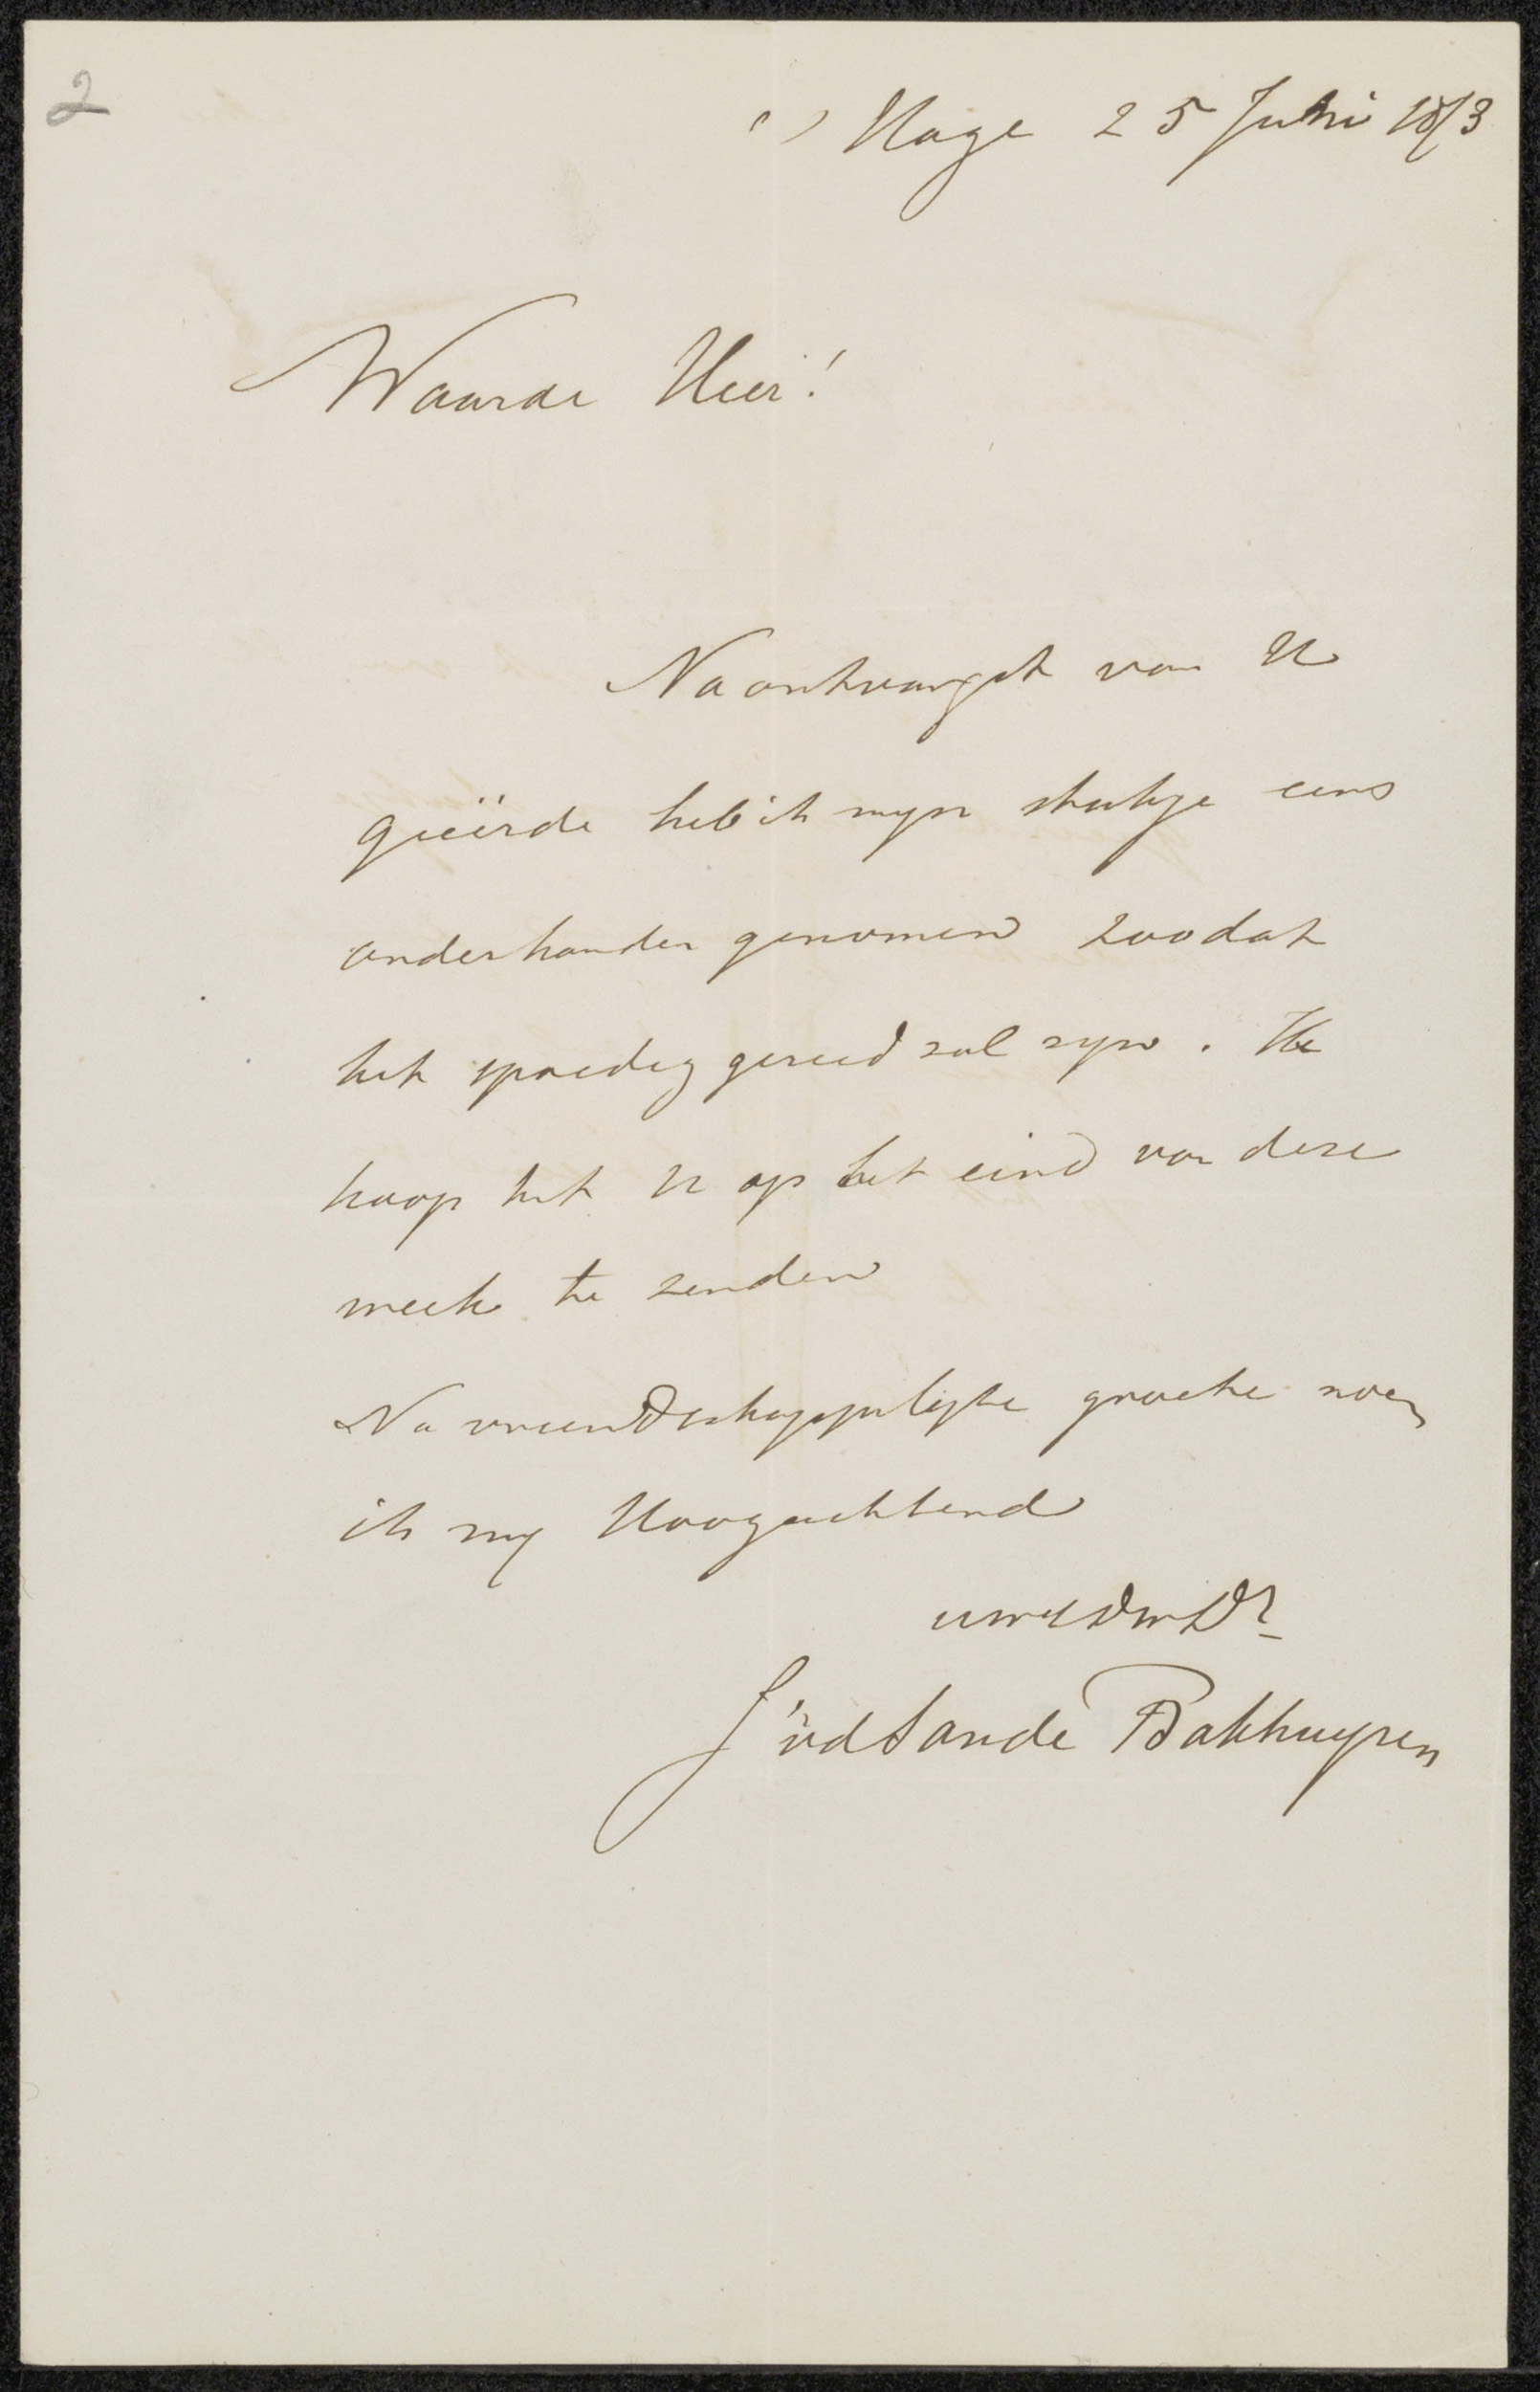 2
's Hage 25 Juni 1873
Waarde Heer!
Na ontvangst van U
geëerde heb ik myn stukje eens
onderhanden genomen zoodat
het spoedig gereed zal zyn. Ik
hoop het U op het eind van deze
week te zenden
Na vriendschappelyke groete noem
ik my Hoogachtend
uwEdwDr
J vd Sande Bakhuyzen